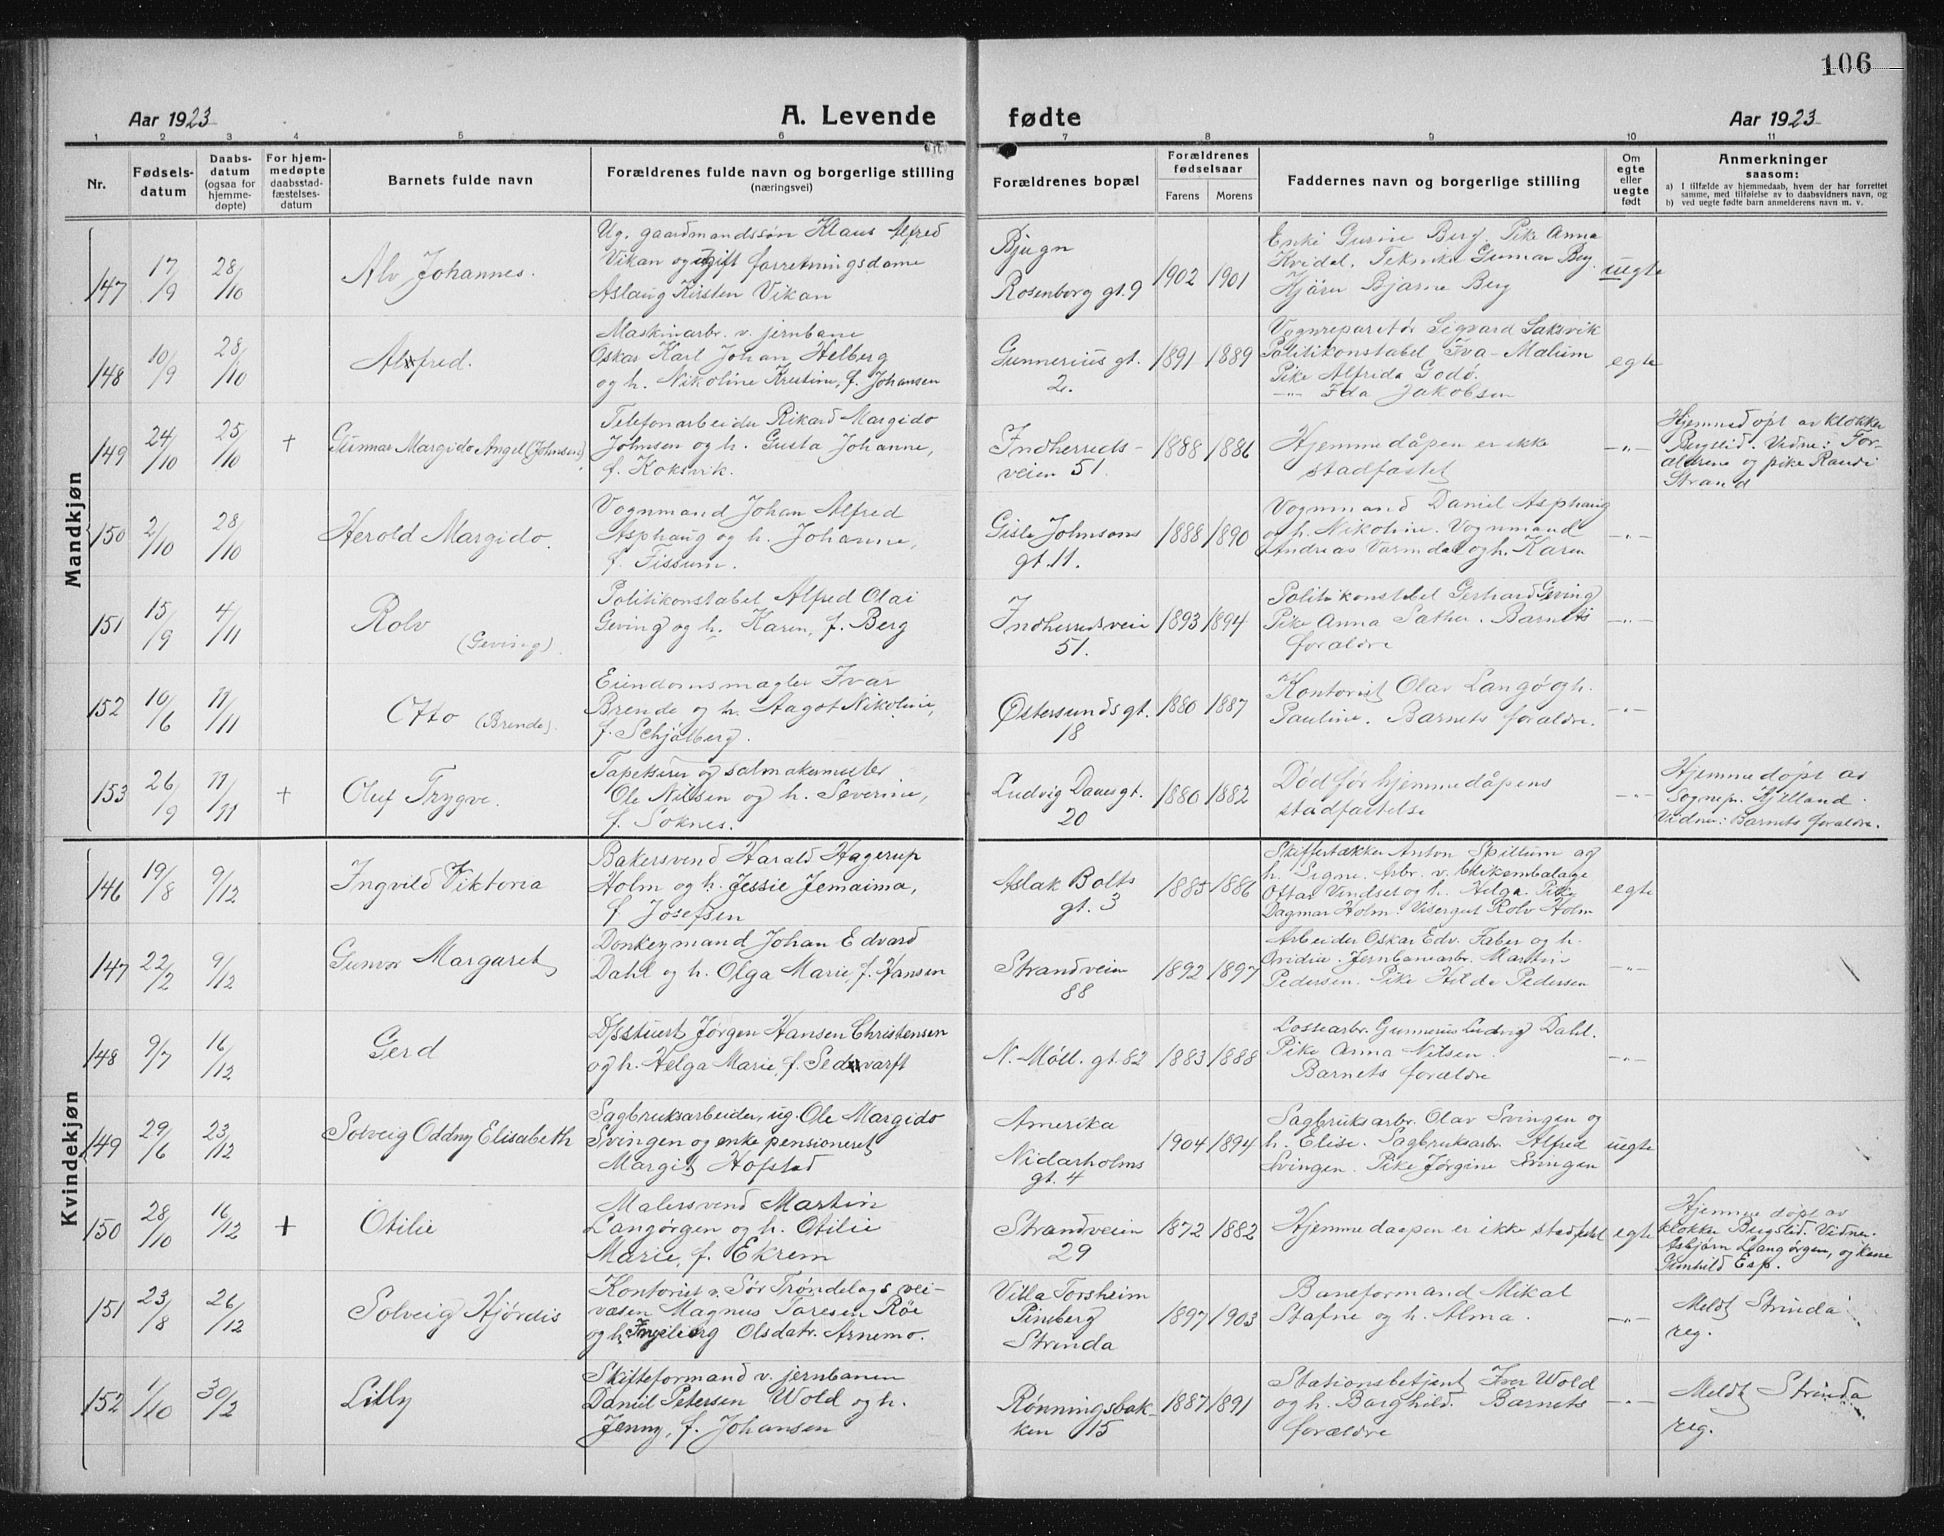 106
Aar 1923
A. Levende
fødte
Aar 1923
1 2 3 4 5 6 7 8 9 10 11
Nr.
Fødsels-
datum
Daabs-
datum
(ogsaa for
hjemme-
døpte)
For hjem-
medøpte
daabsstad-
fæstelses-
datum
Barnets fulde navn
Forældrenes fulde navn og borgerlige stilling
(næringsvei)
Forældrenes bopæl
Forældrenes
fødselsaar
Farens Morens
Faddernes navn og borgerlige stilling
Om
egte
eller
uegte
født
Anmerkninger
saasom:
a) I tilfælde av hjemmedaab, hvem der har forrettet
samme, med tilføielse av to daabsvidners navn, og
b) ved uegte fødte barn anmelderens navn m. v.
Mandkjøn
147
17/9
28/10
Alv Johannes.
Ug. gaardmandssøn Klaus Alfred
Vikan og ugift forretningsdame
Aslaug Kirsten Vikan
Bjugn
Rosenborg gt. 9
1902 1901
Enke Gurine Berg. Pike Anna
Kvidal. Tekniker Gunnar Berg.
Bjarne Berg
uegte
148
10/9
28/10
Alfred.
Maskinarbr. v. jernbane
Oskar Karl Johan Helberg
og h. Nikoline Kristine, f. Johansen
Gunnerius gt.
2.
1891 1889
Vognreparatør Sigvard Saksvik
Politikonstabel Iva Malum
Pike Alfrida Godø.
-"- Ida Jakobsen
egte
149
24/10
25/10
+
Gunnar Margido Angel (Johnsen)
Telefonarbeider Rikard Margido
Johnsen og h. Gusta Johanne,
f. Koksvik.
Indherreds-
veien 51.
1888 1886
Hjemmedåpen er ikke
stadfæstet
-"-
Hjemmedøpt av klokker
Bergslid. Vidne: For-
ældrene og pike Randi
Strand
150
2/10
28/10
Herold Margido.
Vognmand Johan Alfred
Asphaug og h. Johanne,
f. Tissum.
Gisle Johnsons
gt. 11.
1888 1890
Vognmand Daniel Asphaug
og h. Nikoline. Vognmand
Andreas Varmdal og h. Karen
-"-
151
15/9
4/11
Rolv
(Geving)
Politikonstabel Alfred Olai
Geving og h. Karen, f. Berg
Indherredsveien
51.
1893 1894
Politikonstabel Gerhard Geving
Pike Anna Sather. Barnets
forældre
-"-
152
10/6
11/11
Otto (Brende)
Eiendomsmægler Ivar
Brende og h. Aagot Nikoline,
f. Schjølberg.
Østersunds gt.
18
1880 1887
Kontorist Olav Langø og h.
Pauline. Barnets forældre.
-"-
153
26/9
11/11
+
Oluf Trygve.
Tapetserer og salmakermester
Ole Nilsen og h. Severine,
f. Soknes.
Ludvig Daaes gt.
20
1880 1882
Død før hjemmedåpens
stadfæstelse
-"-
Hjemmedøpt av
Sognepr. Kjelland.
Vidner: Barnets forældre.
Kvindekjøn
146
19/8
9/12
Ingvild Viktoria
Bakersvend Harald Hagerup
Holm og h. Jessie Jemaima,
f. Josefsen
Aslak Bolts
gt. 3
1885 1886
Skiffertækker Anton Spillum og
h. Signe. Arbr. v. Blikemballage
Ottar Vindset og h. Helga. Pike
Dagmar Holm. Visergut Rolv Holm
egte
147
22/2
9/12
Gunvor Margaret
Donkeymand Johan Edvard
Dahl og h. Olga Marie, f. Hansen
Strandveien
88
1892 1897
Arbeider Oskar Edv. Faber og h.
Ovidie. Jernbanearbr. Martin
Pedersen. Pike Hilda Pedersen
-"-
148
9/7
16/12
Gerd
D/Sstuert Jørgen Hansen Christensen
og h. Helga Marie, f. Sedevarft
N. Møll. gt. 82
1883 1888
Lossearbr. Gunnerius Ludvig Dahl.
Pike Anna Nilsen.
Barnets forældre
-"-
149
29/6
23/12
Solveig Oddny Elisabeth
Sagbruksarbeider, ug. Ole Margido
Svingen og enke pensioneret
Margit Hofstad
Amerika
Nidarholms
gt. 4
1904 1894
Sagbruksarbr. Olav Svingen og
h. Elise. Sagbruksarbr. Alfred
Svingen. Pike Jørgine Svingen
uegte
150
28/10
16/12
+
Otilie
Malersvend Martin
Langørgen og h. Otilie
Marie, f. Ekrem
Strandveien
29
1872 1882
Hjemmedaapen er ikke stadfestet
egte
Hjemmedøpt av
klokker Bergslid. Vidner:
Asbjørn Langørgen, og kone
Gunhild Esp.
151
23/8
26/12
Solveig Hjørdis
Kontorist v. Sør Trøndelags vei-
væsen Magnus Toresen Røe
og h. Ingeborg Olsdatr. Arnemo.
Villa Forsheim
Pineberg
Strinda
1897 1903
Baneformand Mikal
Stafne og h. Alma.
-"-
Meldt Strinda
reg.
152
1/10
30/12
Lilly
Skifteformand v. jernbanen
Daniel Petersen Wold og h.
Jenny, f. Johansen
Rønningsbak-
ken 15
1887 1891
Stationsbetjent Iver Wold
og h. Borghild. Barnets
forældre
-"-
Meldt Strinda
reg.